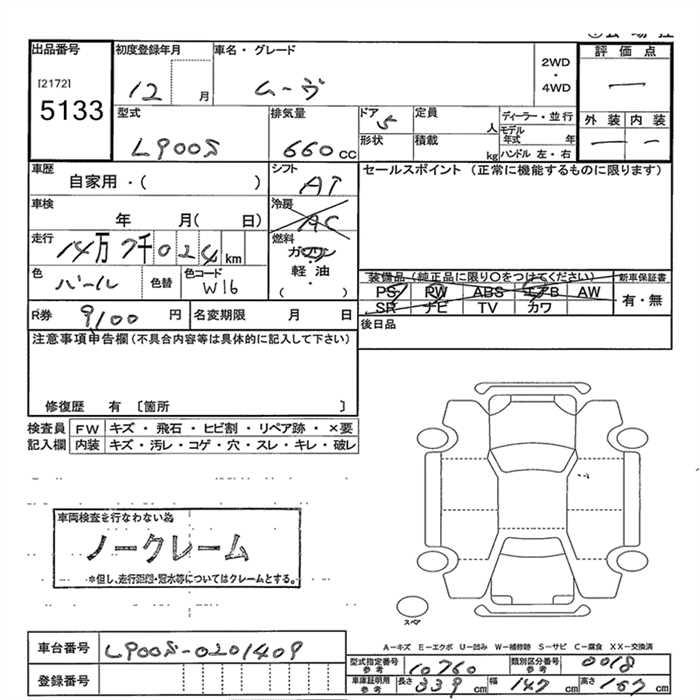 出品番号
[2172]
5133
初度登録年月
12 月
車名・グレード
ムーヴ
2WD
・
4WD
評価点
一
外装 内装
一 一
型式
L900S
排気量
660 cc
ドア
5
形状
定員
人
積載
kg
ディーラー・並行
モデル年式 年
ハンドル 左・右
車歴
自家用・( )
シフト
AT
セールスポイント (正常に機能するものに限ります)
車検
年 月( 日)
冷房
AC
走行
14万7千024 km
燃料
ガソリン
軽油
・
( )
色
パール
色替
色コード
W16
装備品 (純正品に限り〇をつけてください)
PS PW ABS エアB AW
SR ナビ TV カワ
新車保証書
有・無
R券
9100 円
名変期限 月 日
後日品
注意事項申告欄(不具合内容等は具体的に記入して下さい)
修復歴 有 〔箇所 〕
検査員
記入欄
FW キズ・飛石・ヒビ割・リペア跡・×要
内装 キズ・汚レ・コゲ・穴・スレ・キレ・破レ
車両検査を行なわない為
ノークレーム
*但し、走行距離・冠水等についてはクレームとする。
スペア
A−キズ E−エクボ U−凹み W−補修跡 S−サビ C−腐食 XX−交換済
車台番号
L900S-0201409
登録番号
型式指定番号
参考
10760
類別区分番号
参考
0018
車庫証明用
参考
長さ 339 cm 幅 147 cm 高さ 167 cm